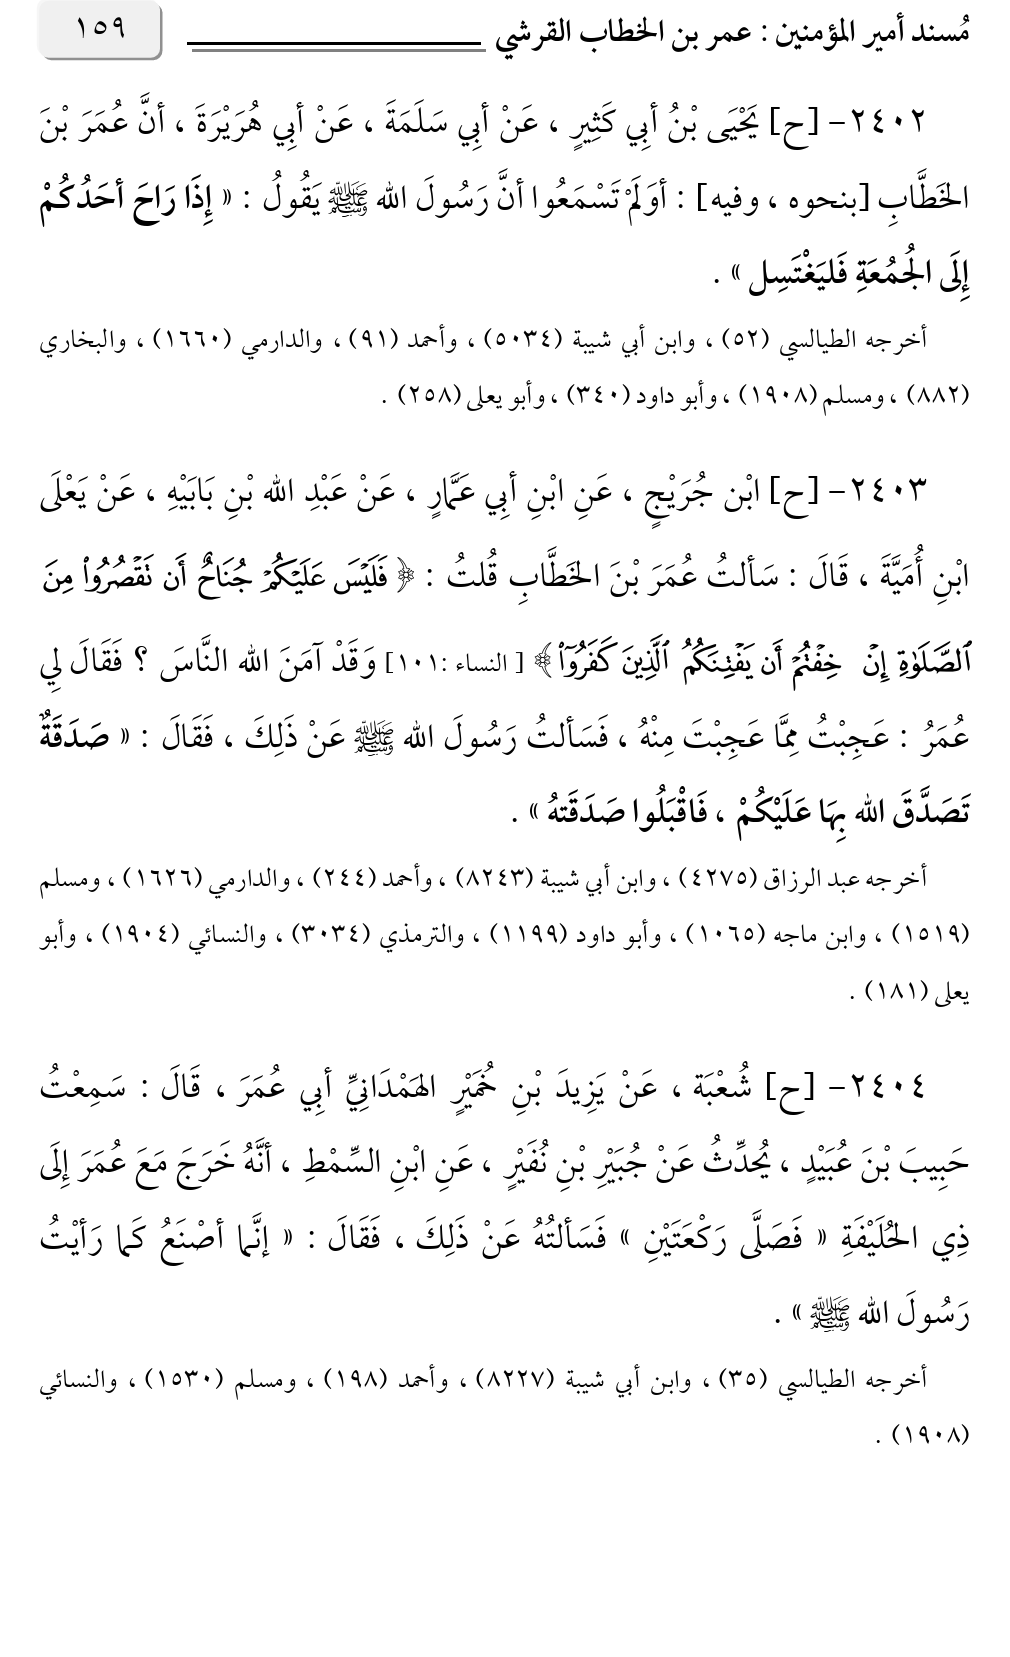 مُسند أمير المؤمنين : عمر بن الخطاب القرشي ١٥٩
٢٤٠٢- [ح] يَحْيَى بْنُ أبِي كَثِيرٍ ، عَنْ أبِي سَلَمَةَ ، عَنْ أبِي هُرَيْرَةَ ، أنَّ عُمَرَ بْنَ
الخَطَّابِ [بنحوه ، وفيه] : أوَلَمْ تَسْمَعُوا أنَّ رَسُولَ الله ﷺ يَقُولُ : « إِذَا رَاحَ أحَدُكُمْ
إِلَى الجُمُعَةِ فَليَغْتَسِل » .
أخرجه الطيالسي (٥٢) ، وابن أبي شيبة (٥٠٣٤) ، وأحمد (٩١) ، والدارمي (١٦٦٠) ، والبخاري
(٨٨٢) ، ومسلم (١٩٠٨) ، وأبو داود (٣٤٠) ، وأبو يعلى (٢٥٨) .
٢٤٠٣- [ح] ابْن جُرَيْجٍ ، عَنِ ابْنِ أبِي عَمَّارٍ ، عَنْ عَبْدِ الله بْنِ بَابَيْهِ ، عَنْ يَعْلَى
ابْنِ أُمَيَّةَ ، قَالَ : سَألتُ عُمَرَ بْنَ الخَطَّابِ قُلتُ : ﴿ فَلَيْسَ عَلَيْكُمْ جُنَاحٌ أَن تَقْصُرُواْ مِنَ
ٱلصَّلَوٰةِ إِنْ خِفْتُمْ أَن يَفْتِنَكُمُ ٱلَّذِينَ كَفَرُوٓاْ ﴾ [ النساء :١٠١] وَقَدْ آمَنَ الله النَّاسَ ؟ فَقَالَ لِي
عُمَرُ : عَجِبْتُ مِمَّا عَجِبْتَ مِنْهُ ، فَسَألتُ رَسُولَ الله ﷺ عَنْ ذَلِكَ ، فَقَالَ : « صَدَقَةٌ
تَصَدَّقَ الله بِهَا عَلَيْكُمْ ، فَاقْبَلُوا صَدَقَتهُ » .
أخرجه عبد الرزاق (٤٢٧٥) ، وابن أبي شيبة (٨٢٤٣) ، وأحمد (٢٤٤) ، والدارمي (١٦٢٦) ، ومسلم
(١٥١٩) ، وابن ماجه (١٠٦٥) ، وأبو داود (١١٩٩) ، والترمذي (٣٠٣٤) ، والنسائي (١٩٠٤) ، وأبو
يعلى (١٨١) .
٢٤٠٤- [ح] شُعْبَة ، عَنْ يَزِيدَ بْنِ خُمَيْرٍ الهَمْدَانِيِّ أبِي عُمَرَ ، قَالَ : سَمِعْتُ
حَبِيبَ بْنَ عُبَيْدٍ ، يُحدِّثُ عَنْ جُبَيْرِ بْنِ نُفَيْرٍ ، عَنِ ابْنِ السِّمْطِ ، أنَّهُ خَرَجَ مَعَ عُمَرَ إِلَى
ذِي الحُلَيْفَةِ « فَصَلَّى رَكْعَتَيْنِ » فَسَألتُهُ عَنْ ذَلِكَ ، فَقَالَ : « إنَّما أصْنَعُ كَما رَأيْتُ
رَسُولَ الله ﷺ » .
أخرجه الطيالسي (٣٥) ، وابن أبي شيبة (٨٢٢٧) ، وأحمد (١٩٨) ، ومسلم (١٥٣٠) ، والنسائي
(١٩٠٨) .